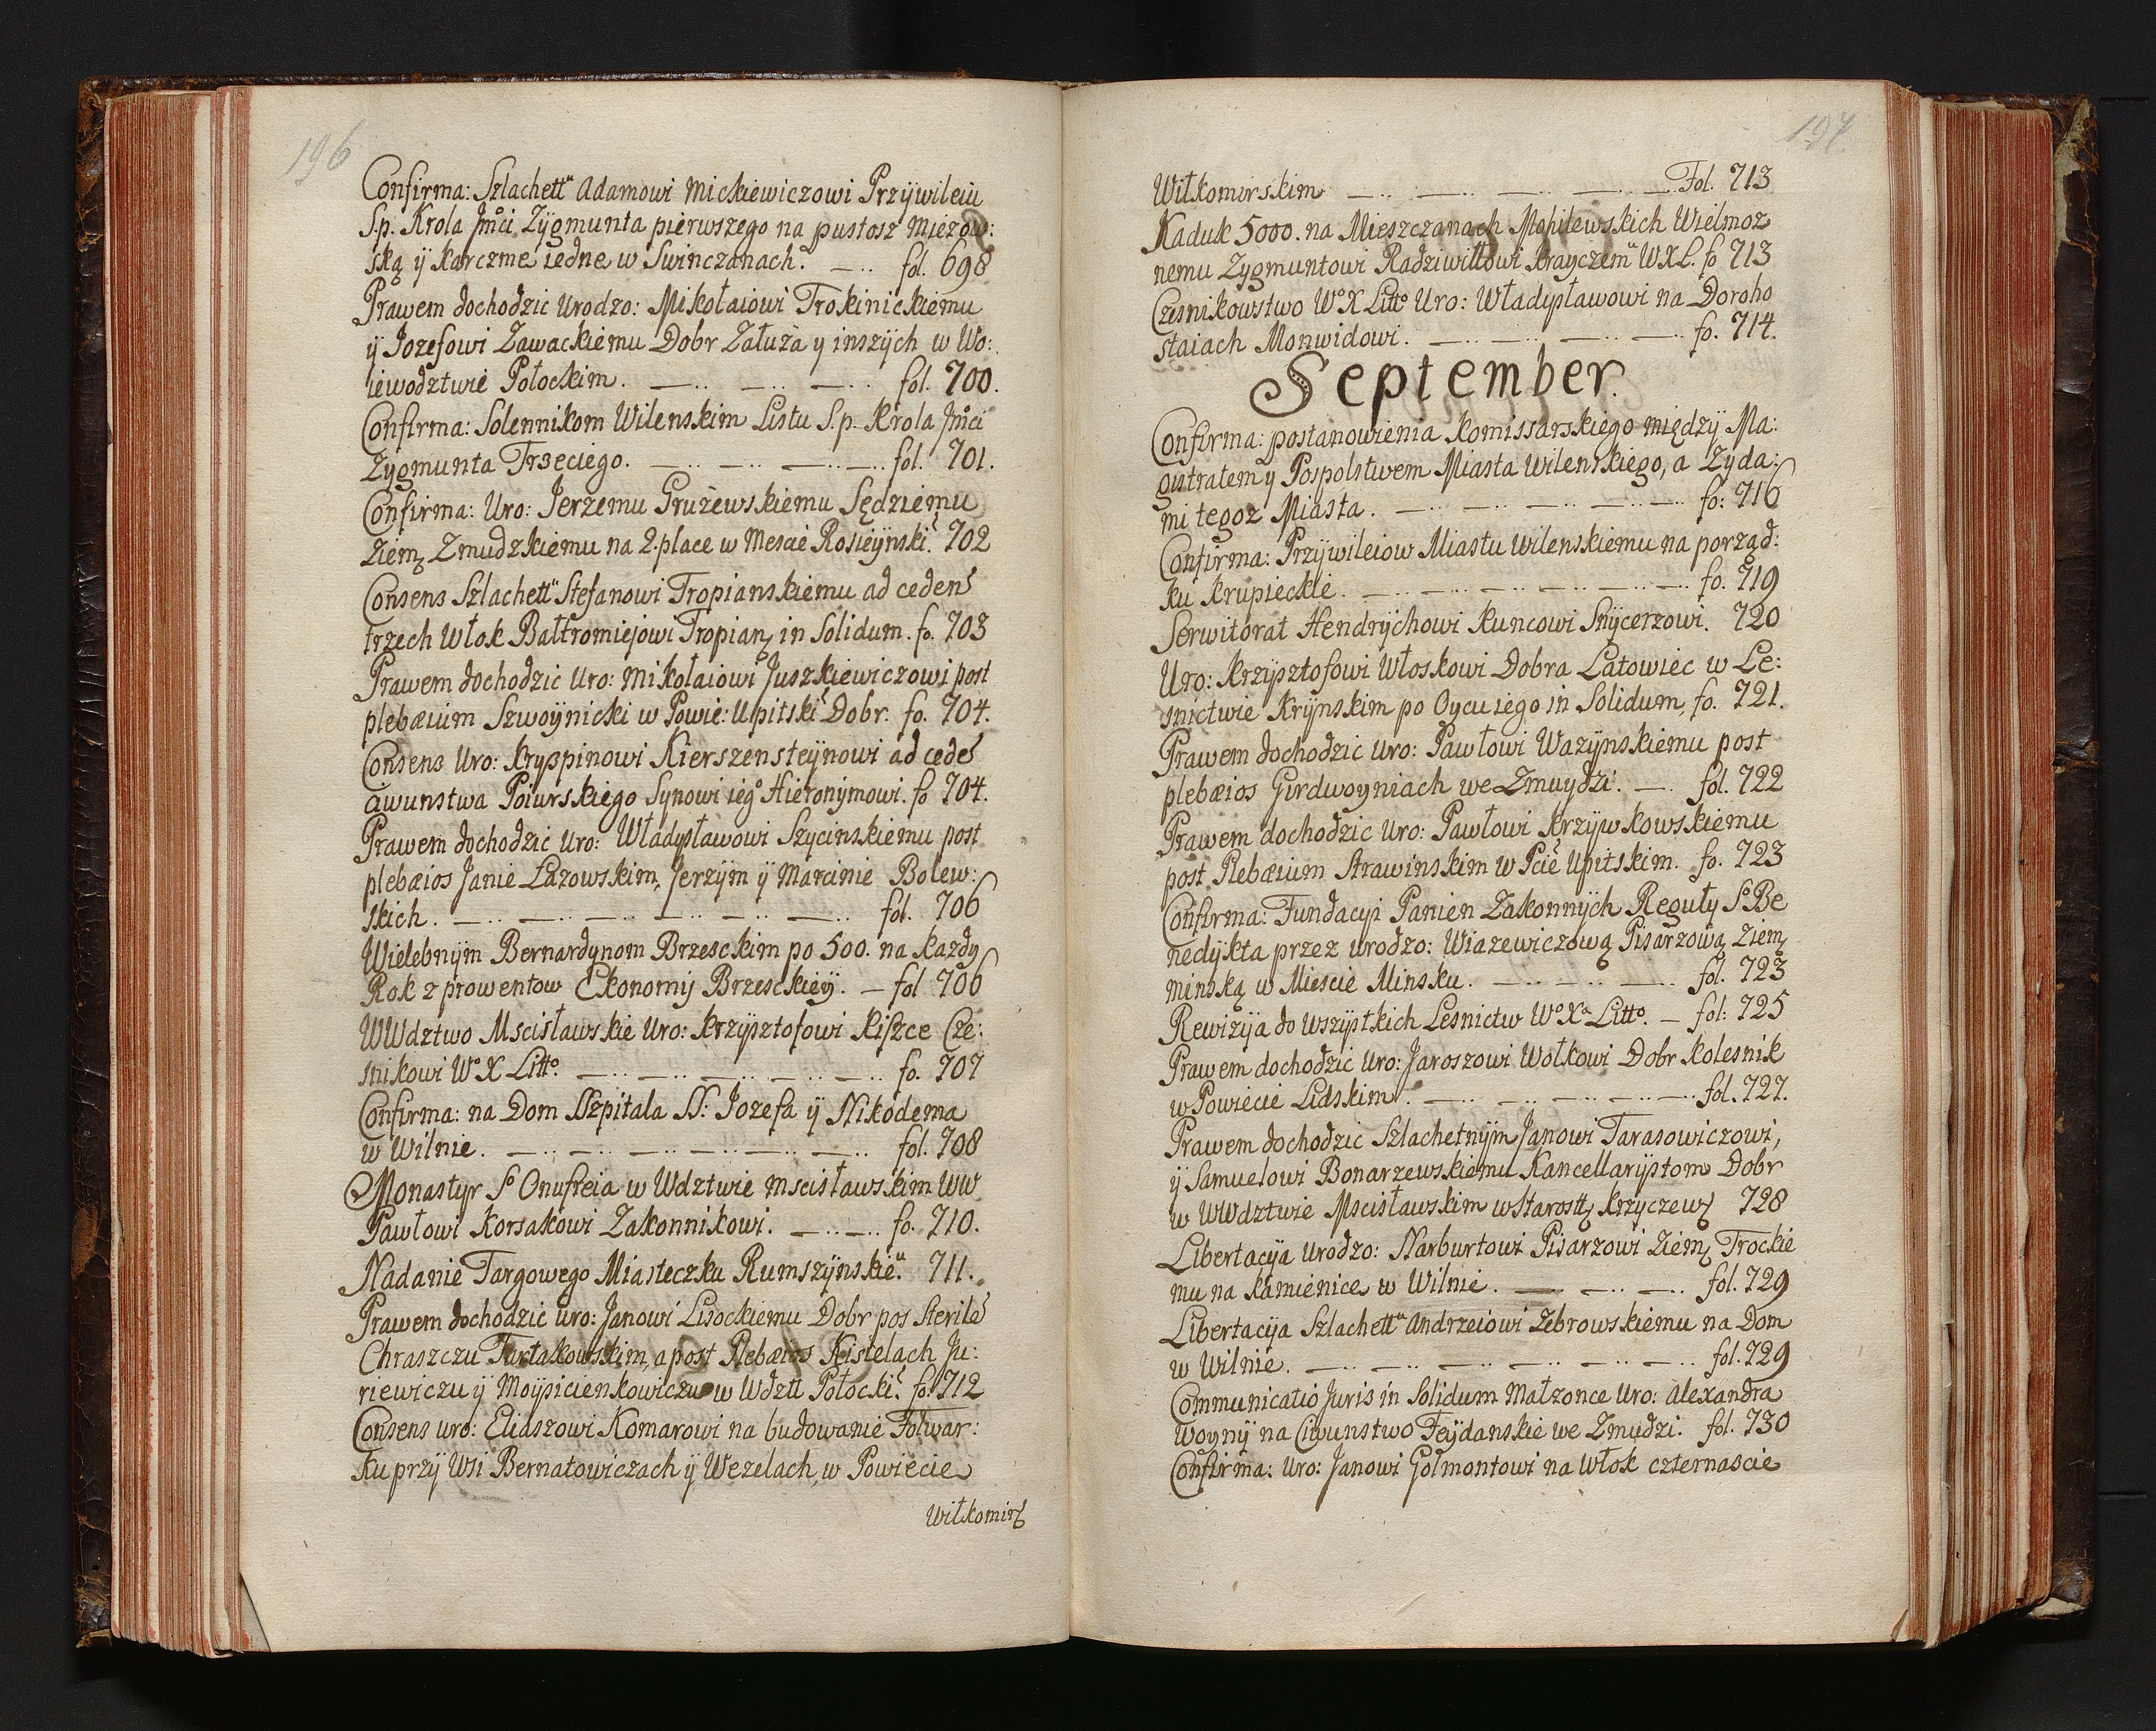 196
Confirma: Szlachett.u Adamowi Mickiewiczowi Przÿwileiu
S.p. Krola Jmci Zÿgmunta pierwszego na pustosz Miezow:
ską ÿ karczme iedne w Swinczanach. fol. 698
Prawem dochodzic Urodzo: Mikołaiowi Trokinickiemu
ÿ Jozefowi Zawackiemu Dobr Załuża y inszÿch w Wo:
iewodztwie Połockim. fol. 700.
Confirma: Solennikom Wilenskim Listu S.p. Krola Jmci
Zygmunta Trzeciego. fol. 701.
Confirma: Uro: Jerzemu Grużewskiemu Sędziemu
Ziem Zmudzkiemu na 2. place w Mescie Rosieÿnski: 702
Consens Szlachett.u Stefanowi Tropianskiemu ad ceden
trzech Włok Bałtromiejowi Tropian in Solidum. fo. 703
Prawem dochodzic Uro: Mikołaiowi Juszkiewiczowi post
plebæium Szwoÿnicki w Powie: Upitski Dobr. fo. 704.
Consens Uro: Kryspinowi Kierszensteÿnowi ad cede
Ciwunstwa Poiurskiego Synowi ieg.o Hieronÿmowi. fo 704.
Prawem dochodzic Uro: Władysławowi Szycinskiemu post
plebæios Janie Łazowskim, Jerzÿm ÿ Marcinie Bolew:
skich. fol. 706
Wielebnÿm Bernardynom Brzesckim po 500. na każdy
Rok z prowentow Ekonomij Brzesckieÿ. fol 706
WWdztwo Mscisławskie Uro: Krzÿsztofowi Kiszce Cze:
snikowi W.o X Litt.o fo. 707
Confirma: na Dom SSzpitala SS: Jozefa ÿ Nikodema
w Wilnie. fol. 708
Monastyr S.o Onufreia w Wdztwie Mscisławskim WW
Pawłowi Korsakowi Zakonnikowi. fo. 710.
Nadanie Targowego Miasteczku Rumszÿnskie.u 711.
Prawem dochodzic Uro: Janowi Lisockiemu Dobr pos Sterile
Chraszczu Tartakowskim a post Plebæios Kistelach Ju:
riewiczu ÿ Moÿsicienkowiczu w Wdztt Połocki. fo. 712
Consens Uro: Eliaszowi Komarowi na budowanie Folwar:
ku przÿ Wsi Bernatowiczach ÿ Wezelach, w Powiecie
Wiłkomir
197.
Wiłkomirskim Fol. 713
Kaduk 5000. na Mieszczanach Mohilewskich Wielmoz
nemu Zygmuntowi Radziwiłłowi Krayczem.u WXL. fo 713
Czesnikowstwo W.o X Litt.o Uro: Władysławowi na Doroho
staiach Monwidowi. fo. 714.
September.
Confirma: postanowienia Komissarskiego międzÿ Ma:
gistratem y Pospolstwem Miasta Wilenskiego, a Zyda:
mi tegoz Miasta. fo: 716
Confirma: Przÿwileiow Miastu Wilenskiemu na porząd:
ku Krupieckie. fo. 719
Serwitorat Hendrÿchowi Kuncowi Snÿcerzowi. 720
Uro: Krzÿsztofowi Włoskowi Dobra Latowiec w Le:
snictwie Krÿnskim po Oycu iego in Solidum, fo. 721.
Prawem dochodzic Uro: Pawłowi Wazÿnskiemu post
plebæios Girdwoyniach we Zmuydzi. fol. 722
Prawem dochodzic Uro: Pawłowi Krzÿwkowskiemu
post Plebæium Strawinskim w Pcie Upitskim. fo. 723
Confirma: Fundacyi Panien Zakonnÿch Reguły S.o Be
nedÿkta przez Urodzo: Wiazewiczową Pisarzową Ziem
minską w Miescie Minsku. fol. 723
Rewizÿa do Wszÿstkich Lesnictw W.o X.a Litt.o fol: 725
Prawem dochodzic Uro: Jaroszowi Wołkowi Dobr Kolesnik
w Powiecie Lidskim. fol. 727.
Prawem dochodzic Szlachetnÿm Janowi Tarasowiczowi,
ÿ Samuelowi Bonarzewskiemu Kancellarÿstom Dobr
w WWdztwie Mscisławskim w Starostt Krzyczew 728
Libertacÿa Urodzo: Narburtowi Pisarzowi Ziem Trockie
mu na Kamienice w Wilnie. fol. 729
Libertacÿa Szlachett.u Andrzeiowi Zebrowskiemu na Dom
w Wilnie. fol. 729
Communicatio Juris in Solidum Małzonce Uro: Alexandra
Woynÿ na Ciwunstwo Teÿdanskie we Zmudzi. fol. 730
Confirma: Uro: Janowi Gołmontowi na Włok czternascie